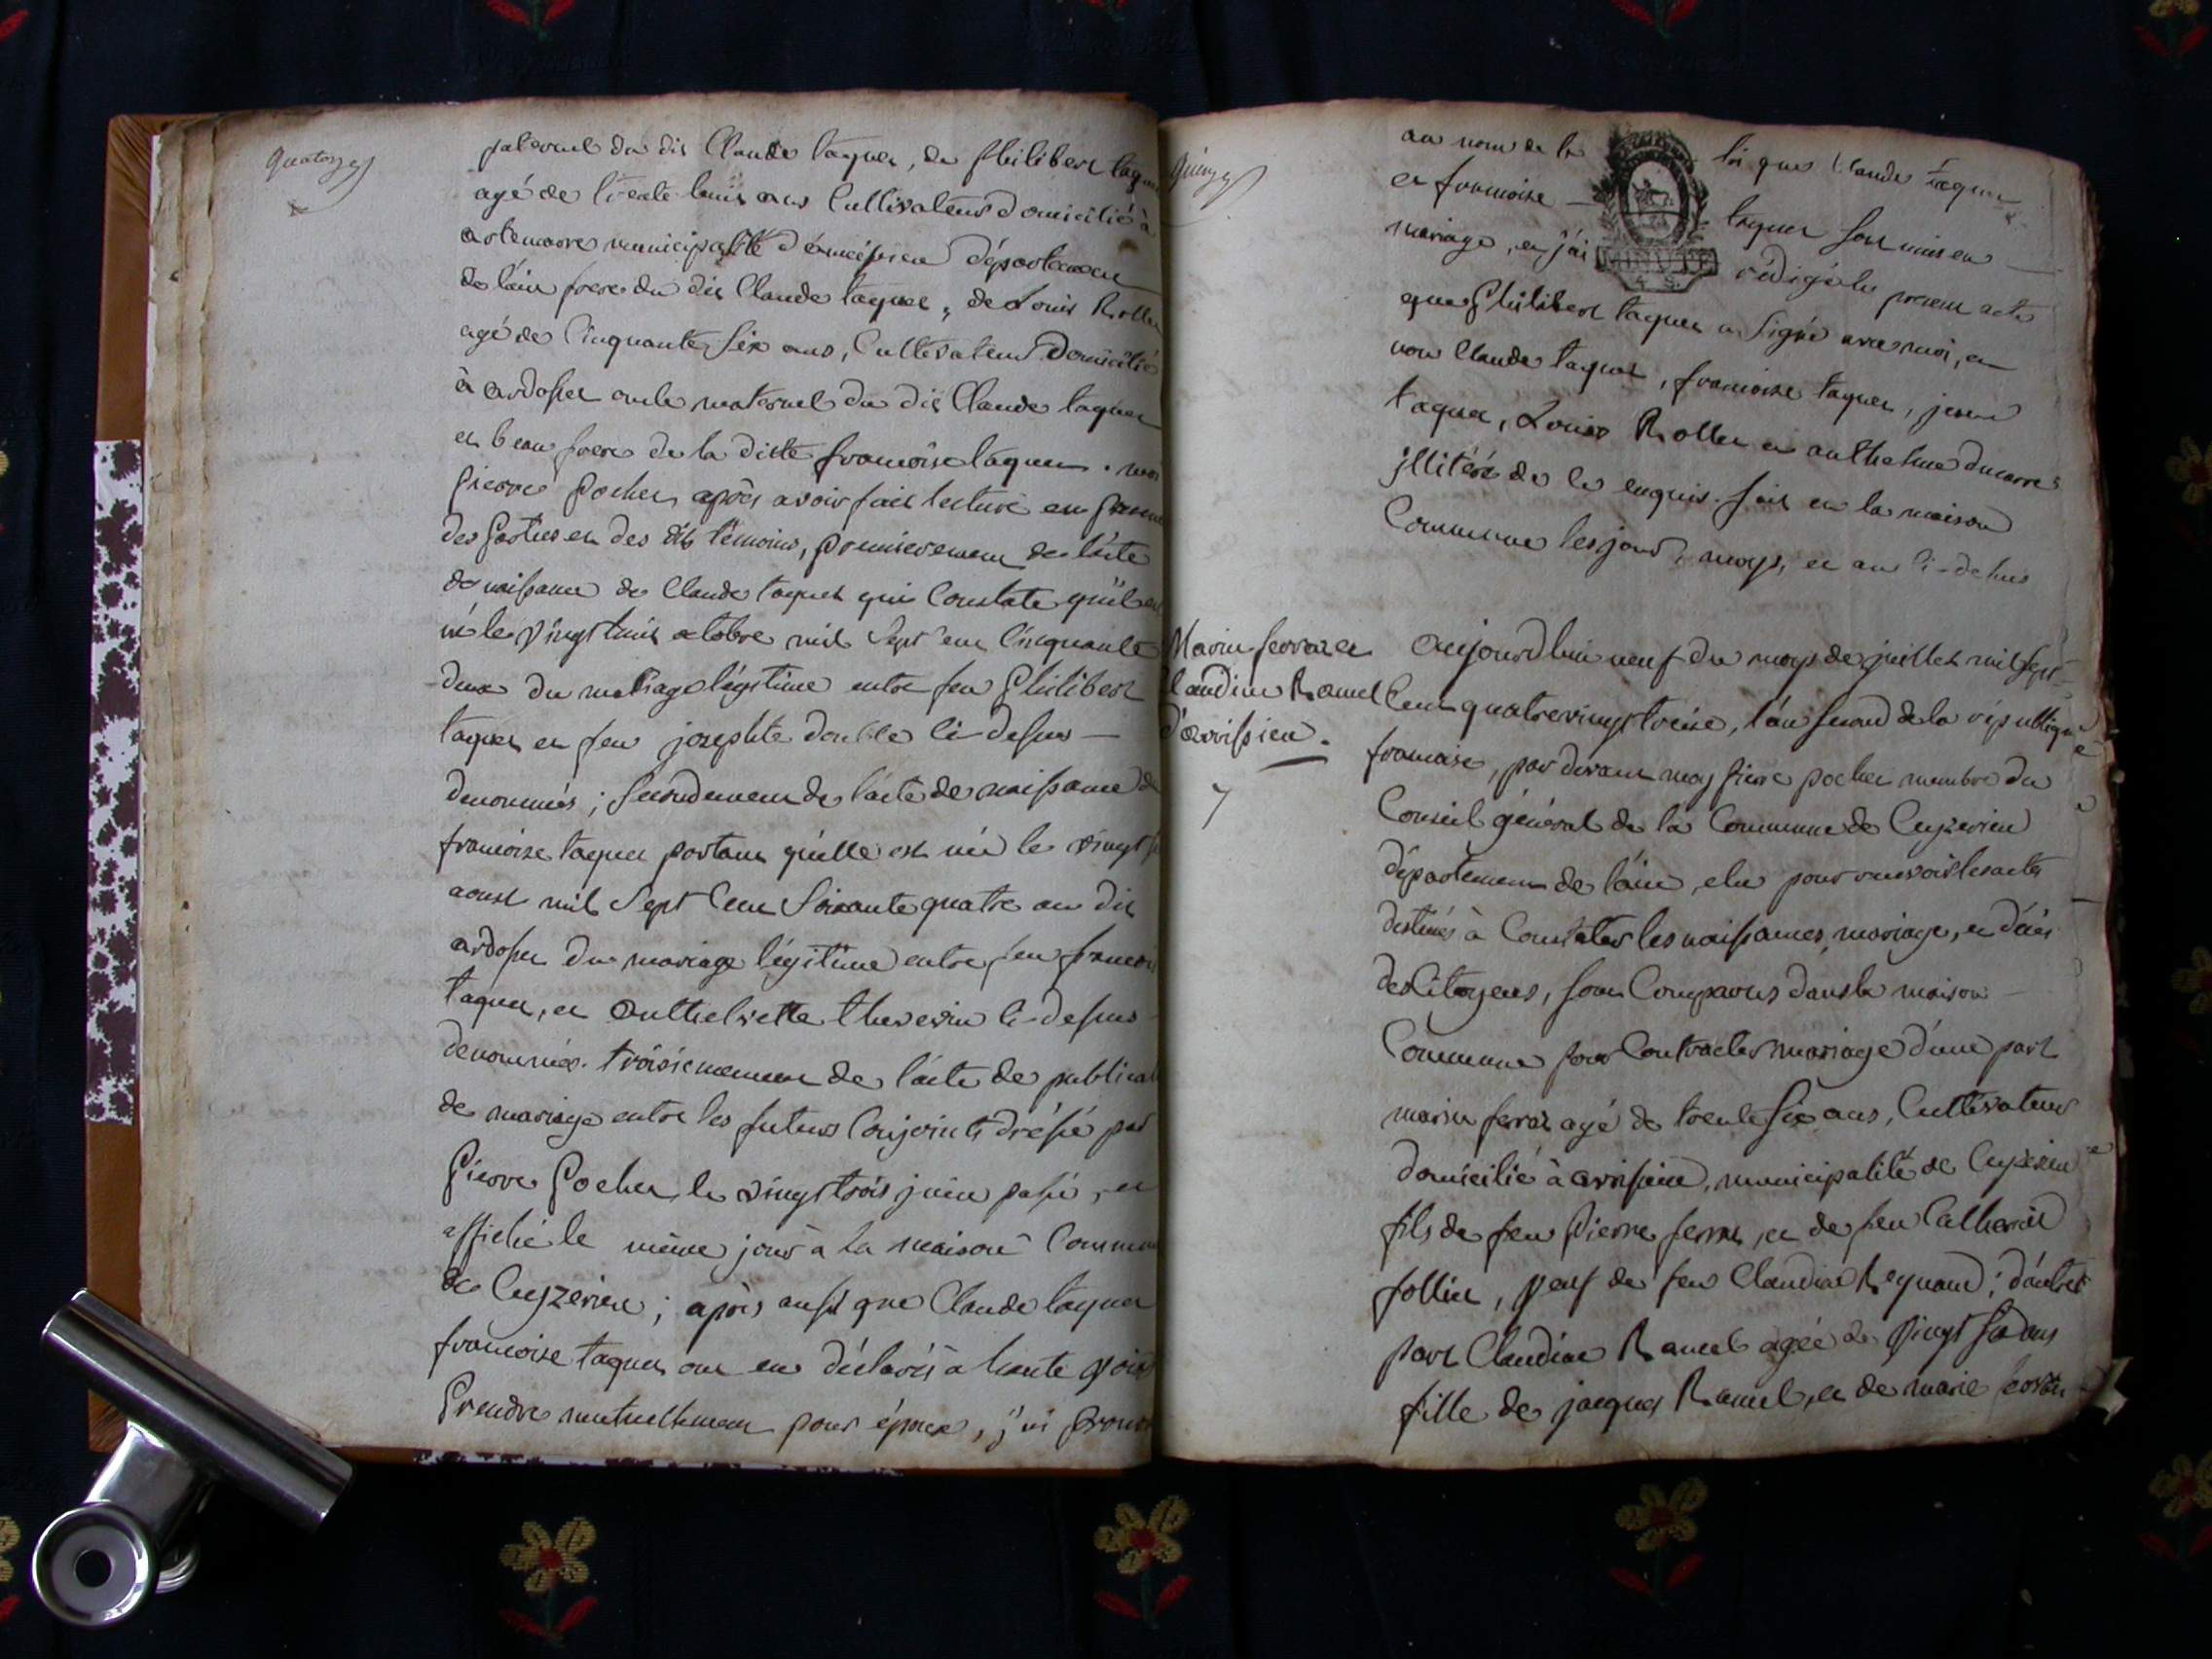 quatorze
paternel du dit Claude taquet, de philibert
agé de trente huit ans Cultivateur domicilié à
artemare municipalité département
de l'ain frere du dit Claude taquet, de Louis Rollet
agé de Cinquante Six ans, Cultivateur domicilié
à ardosset oncle maternel du dit Claude taquet
et beau frere de la ditte francoise taquet. moi
pierre pochet après avoir fait lecture en
des parties et des dits temoins, premierement de l'acte
de naissance de Claude taquet qui Constate qu'il est
né le vingt huit octobre mil Sept cent Cinquante
deux du mariage légitime entre feu philibert
taquet et feu josephte double ci-dessus
denommés ; secondement de l'acte de naissance de
francoise taquet portant qu'elle est née le vingt
aoust mil Sept Cent Soixante quatre au dit
ardosset du mariage légitime entre feu francois
taquet, et anthelmette thevenin ci-dessus
denommés. troisiemement de l'acte de
de mariage entre les futurs Conjoints dréssé par
Pierre Pochet le vingt trois juin passé, et
affiché le même jour à la maison
de Ceyzerieu ; après aussi que Claude taquet
francoise taquet ont eu déclarés à haute voix
Prendre mutuellement pour époux, j'ai
quinze
au nom de la loi que Claude taquet
et francoise taquet sont unis en
mariage, et j'ai rédigé le present acte
que philibert taquet a Signé avec moi, et
non Claude taquet, francoise taquet,
taquet, Louis Rollet et anthelme ducarre
illitéré de ce enquis. fait en la maison
Commune les jour, moys, et an ci-dessus
Marin ferraz et
Claudine Ramel
d'avrissieu.
7
aujourdhui neuf du moys de juillet mil Sept
Cent quatrevingt treize, l'an second de la république
francaise, par devant moy pierre pochet membre du
Conseil général de la Commune de Ceyzerieu
département de l'ain, elu pour recevoir les actes
destinés à Constater les naissances, mariage, et décès
des Citoyens, sont Comparus dans la maison
Commune pour Contracter mariage d'une part
marin ferraz agé de trente Six ans, Cultivateur
domicilié à avrissieu, municipalité de Ceyzerieu
fils de feu Pierre ferraz, et de feu Catherine
follie, veuf de feu Claudine Reynaud ; d'autre
part Claudine Ramel agée de vingt
fille de jacques Ramel, et de marie